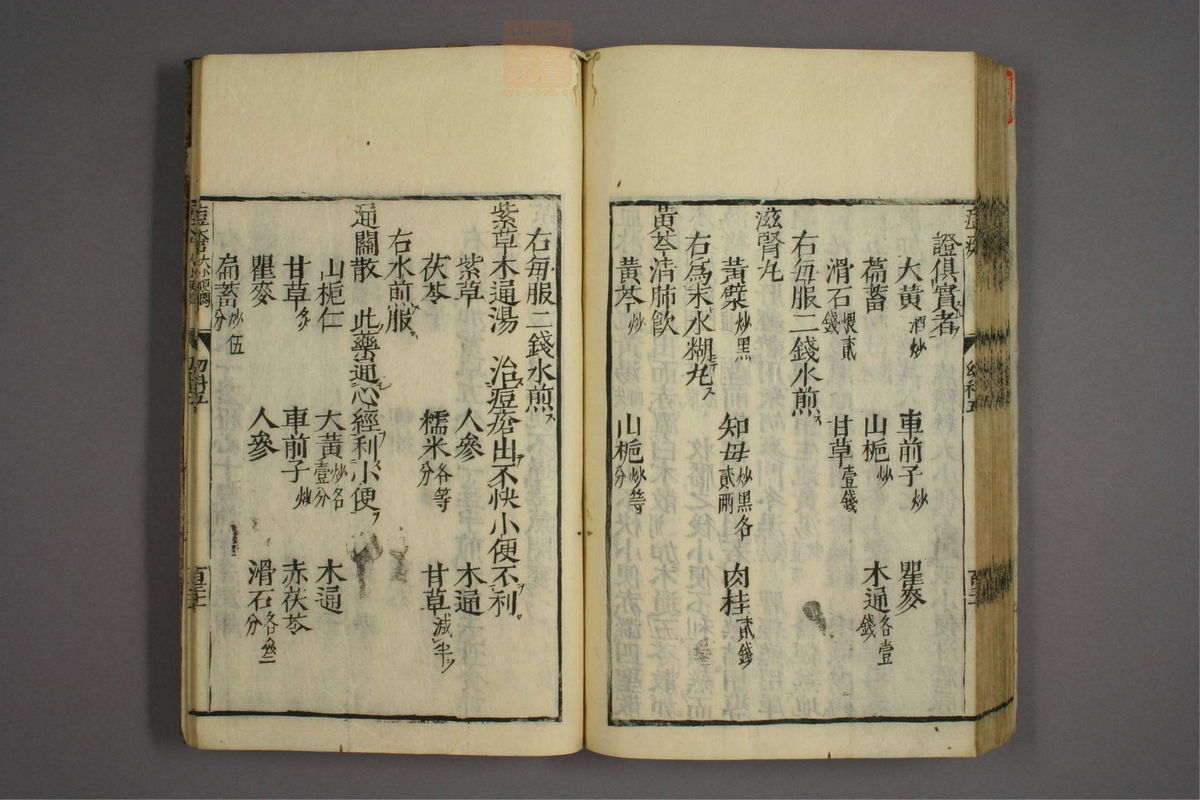 證俱實者
大黃酒炒 車前子炒 瞿麥
萹蓄 山梔炒 木通各壹錢
滑石貳錢 甘草壹錢
右每服二錢水煎
滋腎丸
黃檗炒黑 知母炒黑各貳兩 肉桂貳錢
右為末水糊丸
黃芩清肺飲
黃芩炒 山梔炒等分
右每服二錢水煎
紫草木通湯 治痘瘡出不快小便不利
紫草 人參 木通
茯苓 糯米各等分 甘草減半
右水煎服
通關散 此藥通心經利小便
山梔仁 大黃炒各壹分 木通
甘草炙 車前子炒 赤茯苓
瞿麥 人參 滑石各叁分
萹蓄炒伍分
幼科五